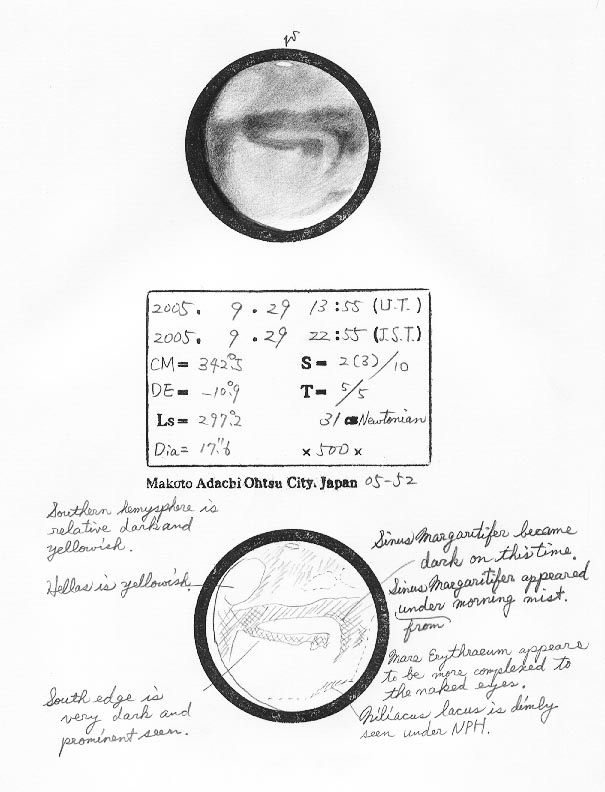 2005. 9. 29 13:55 (U.T.)
2005. 9. 29 22:55 (J.S.T.)
CM= 342°.5 S= 2(3)/10
DE= -10°.9 T= 5/5
Ls= 297°.2 31 Newtonian
Dia= 17".6 × 500 ×
Makoto Adachi Ohtsu City, Japan 05-52
Southern hemysphere is
relative dark and
yellowish.
Hellas is yellowish.
South edge is
very dark and
prominent seen.
Sinus Margaritifer became
dark on this time.
Sinus Margaritifer appeared
under morning mist.
from
Mare Erythraeum appears
to be more complexed to
the naked eyes.
Niliacus lacus is dimly
seen under NPH.